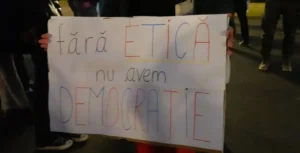 fără ETICĂ
nu avem
DEMOCRAȚIE